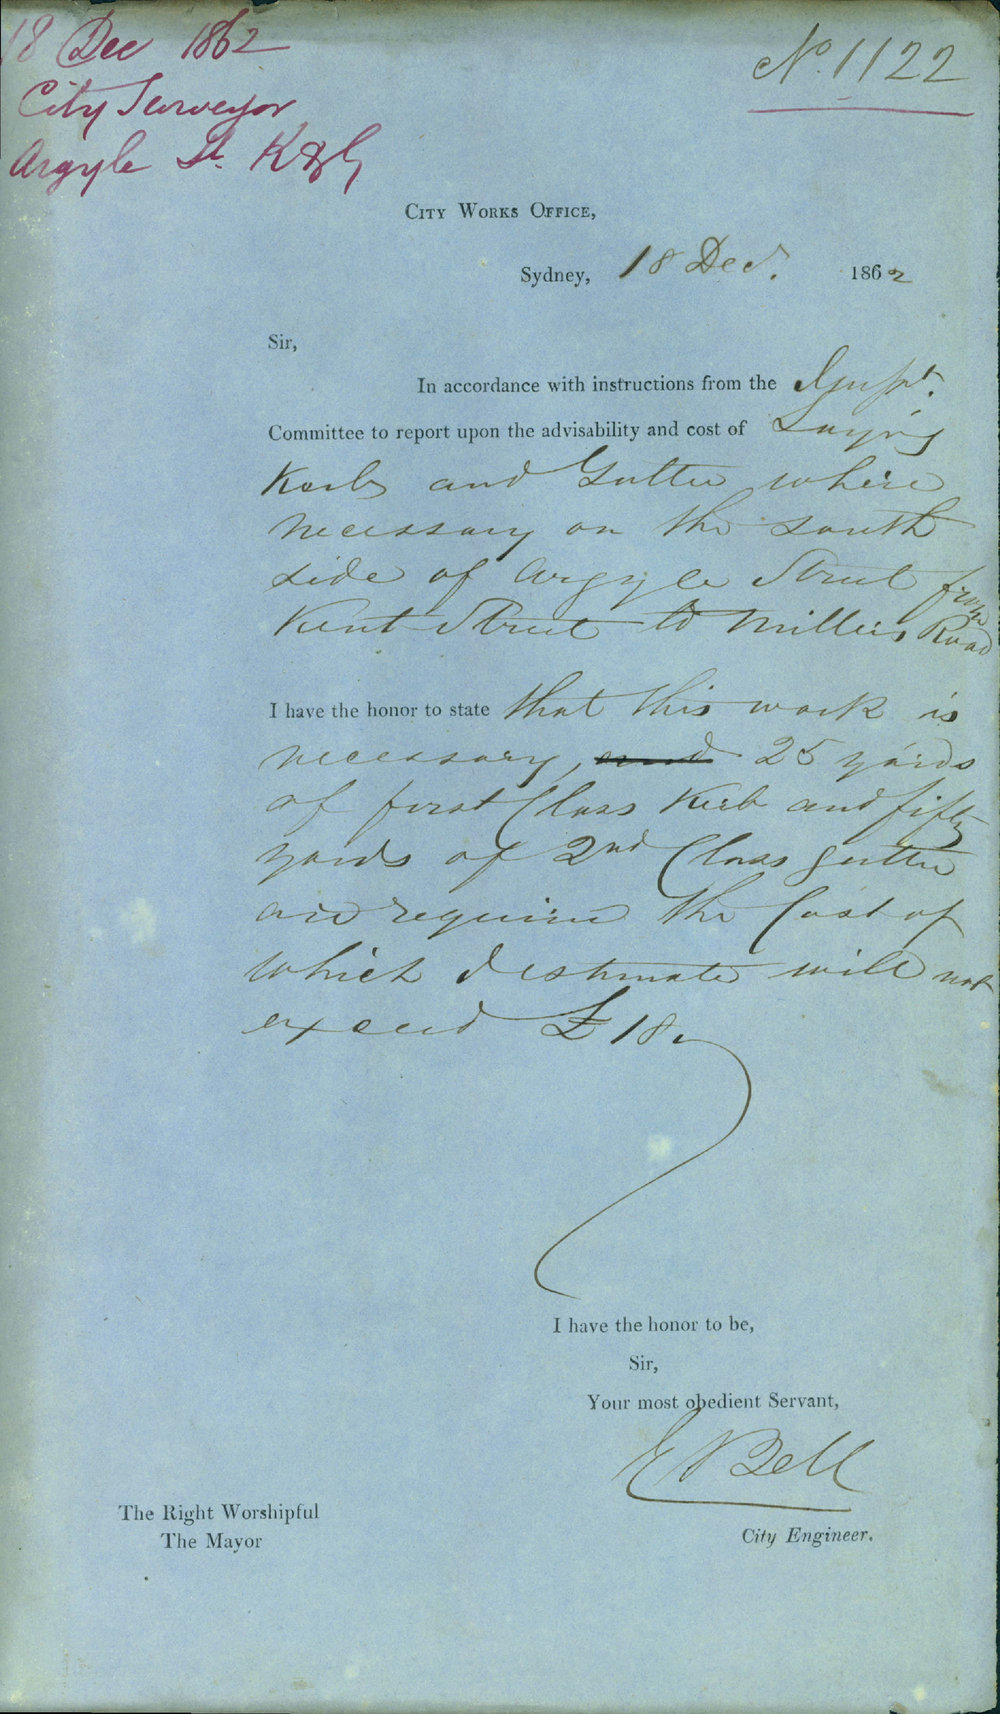 18 Dec 1862
City Surveyor
Argyle St. K & G
No. 1122
City Works Office,
Sydney, 18 Decr. 1862
Sir,
In accordance with instructions from the
Committee to report upon the advisability and cost of Laying
Kerb and Gutter where
necessary on the south
side of Argyle Street from
Kent Street to Millers Road
I have the honor to state that this work is
necessary, and 25 yards
of first Class Kerb and fifty
yards of 2nd Class gutter
are require the Cost of
which I estimate will not
exceed £18.
I have the honor to be,
Sir,
Your most obedient Servant,
E Bell
City Engineer.
The Right Worshipful
The Mayor